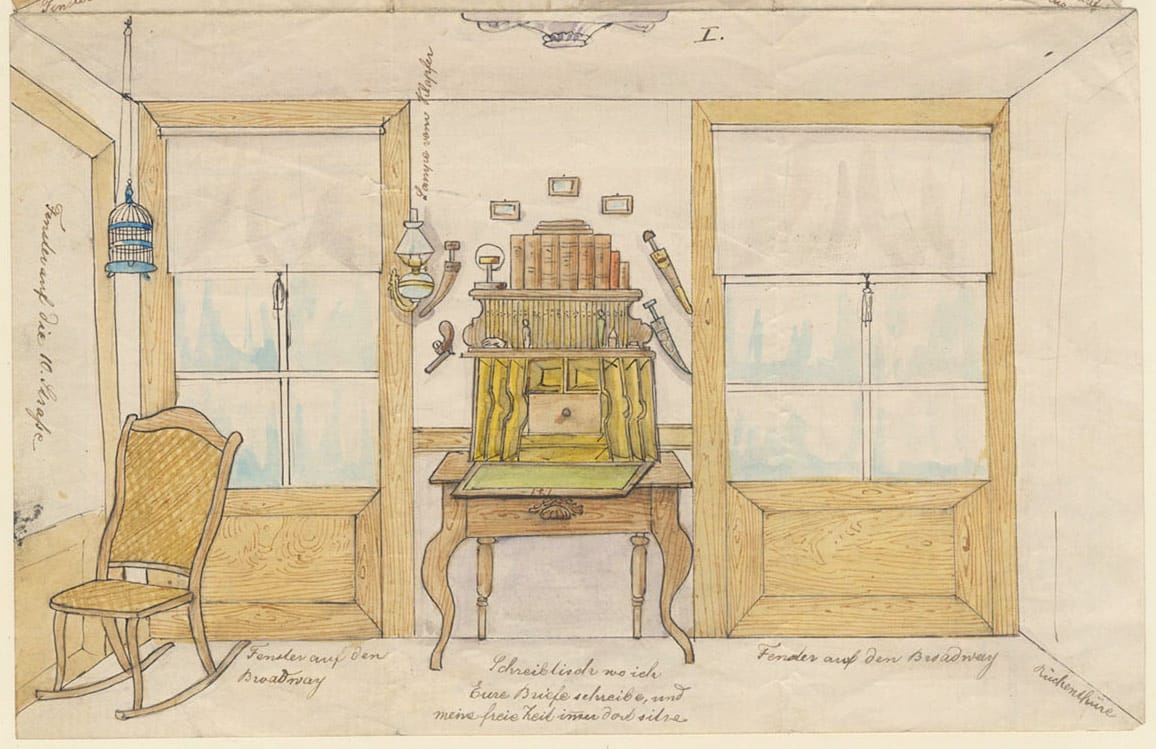 Fenster
I.
Lampe vom Klopfer
Fenster auf die 10. Straße
Fenster auf den
Broadway
Schreibtisch wo ich
Eure Briefe schreibe, und
meine freie Zeit immer dort sitze
Fenster auf den Broadway
Küchenthüre